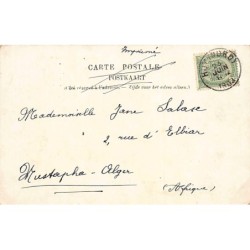 Imprimé
CARTE POSTALE
POSTKAART
Côté réservé à l'adresse. Zijde voor het adres alleen.
Mademoiselle Jane Salasc
2, rue d'Elbiar
Mustapha-Alger
(Afrique)